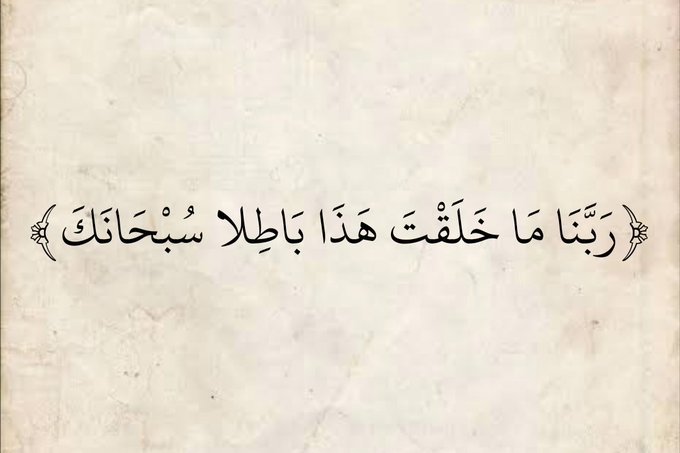 ﴿رَبَّنَا مَا خَلَقْتَ هَذَا بَاطِلا سُبْحَانَكَ﴾